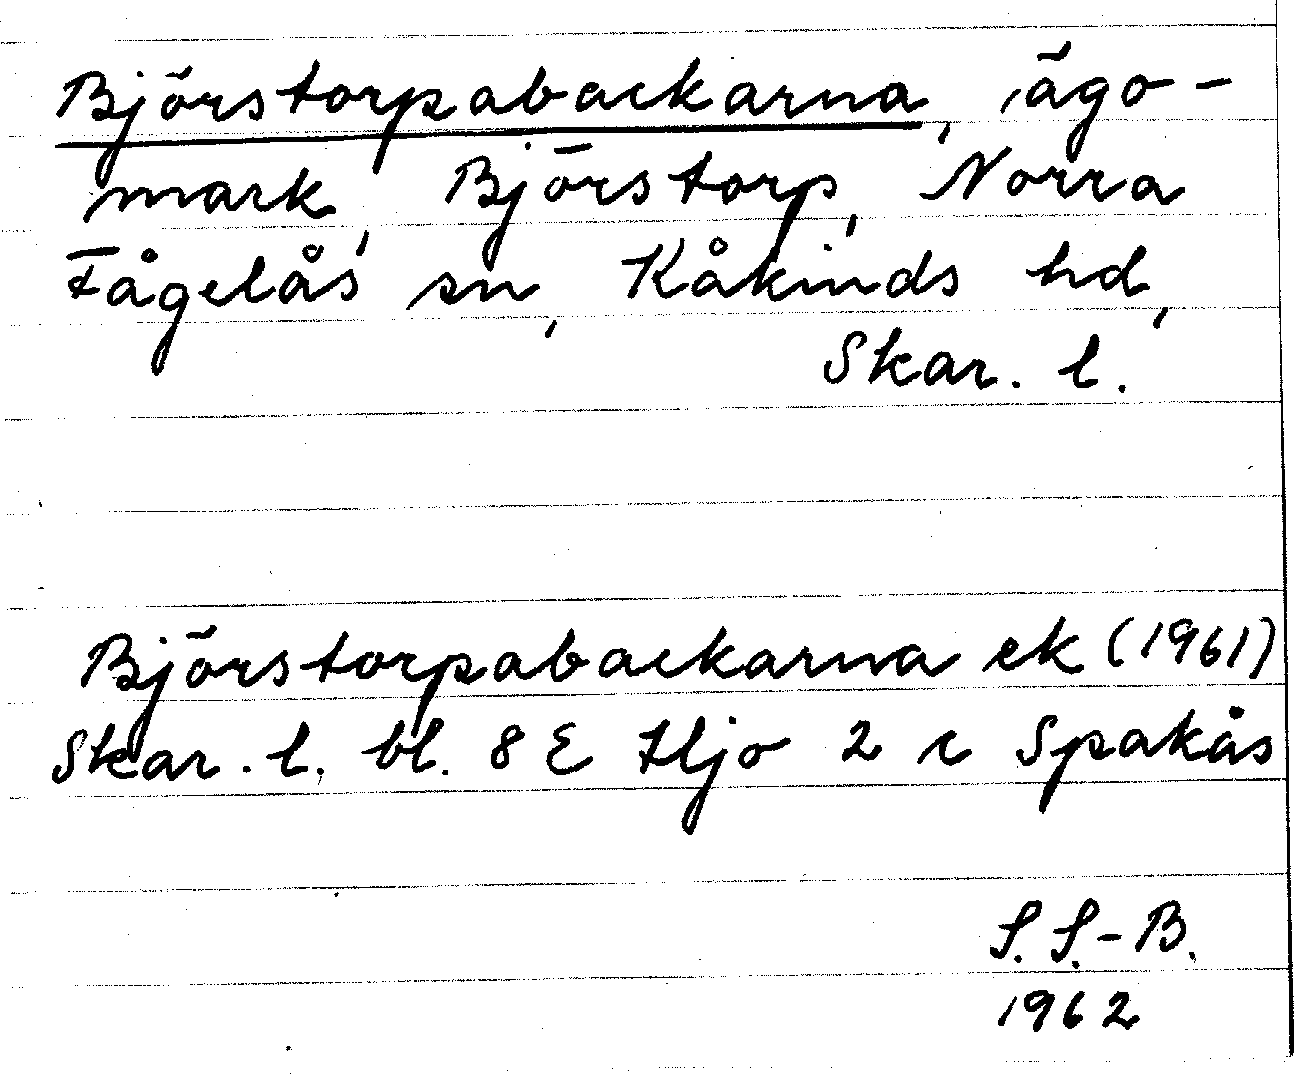 Björstorpabackarna, ägo-
mark, Björstorp, Norra
Fågelås sn, Kåkinds hd,
Skar. l.
Björstorpabackarna ek (1961)
Skar. l. bl. 8 E Hjo 2 c Spakås
S. S.-B.
1962